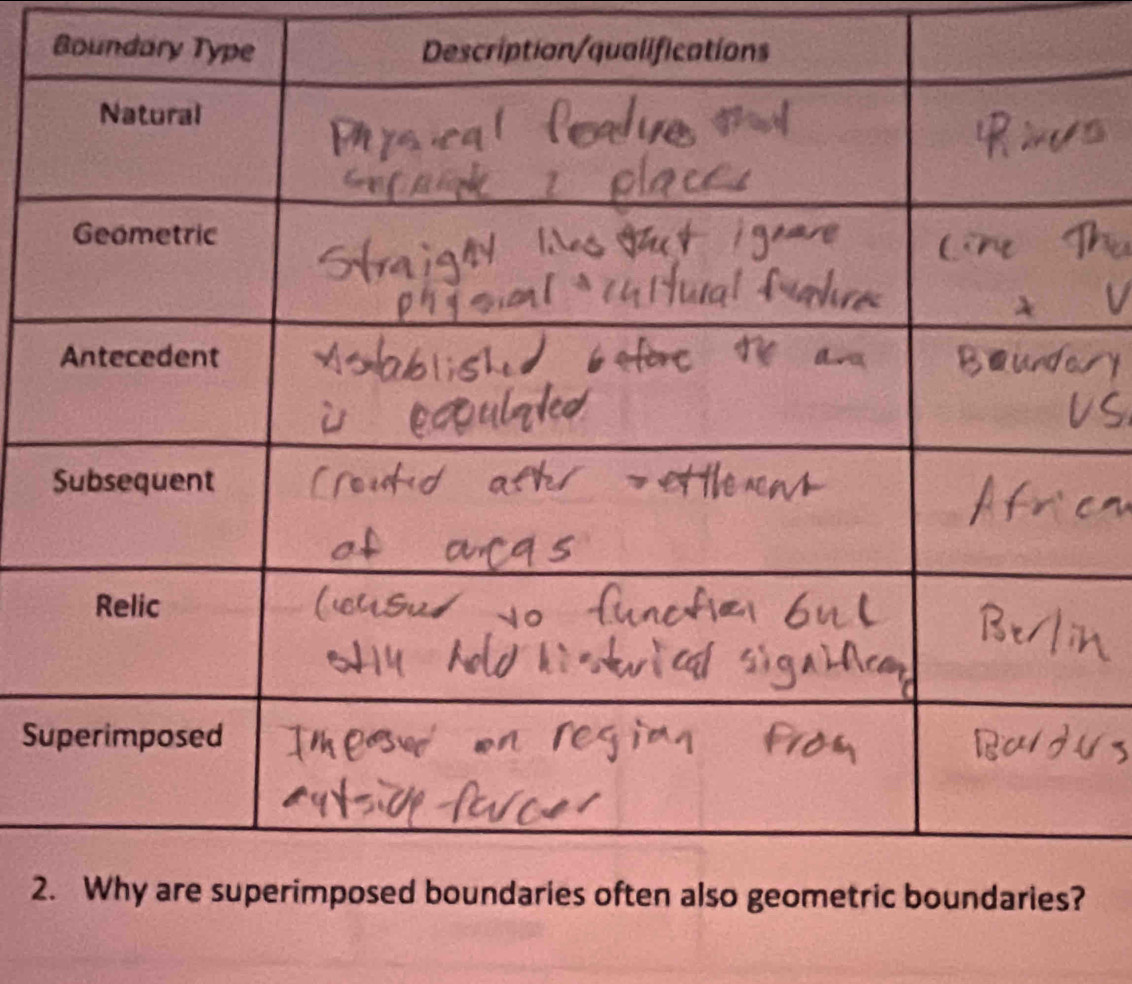 Boundary Type Description/qualifications
Natural Physical features that Rivers
separate 2 places
Geometric Straight lines that ignore Line
physical + cultural features
Antecedent established before the area Boundary
is populated US
Subsequent Created after settlement Africa
of areas
Relic to function but Berlin
still hold historical significance
Superimposed Imposed on region from Borders
outside forces
2. Why are superimposed boundaries often also geometric boundaries?